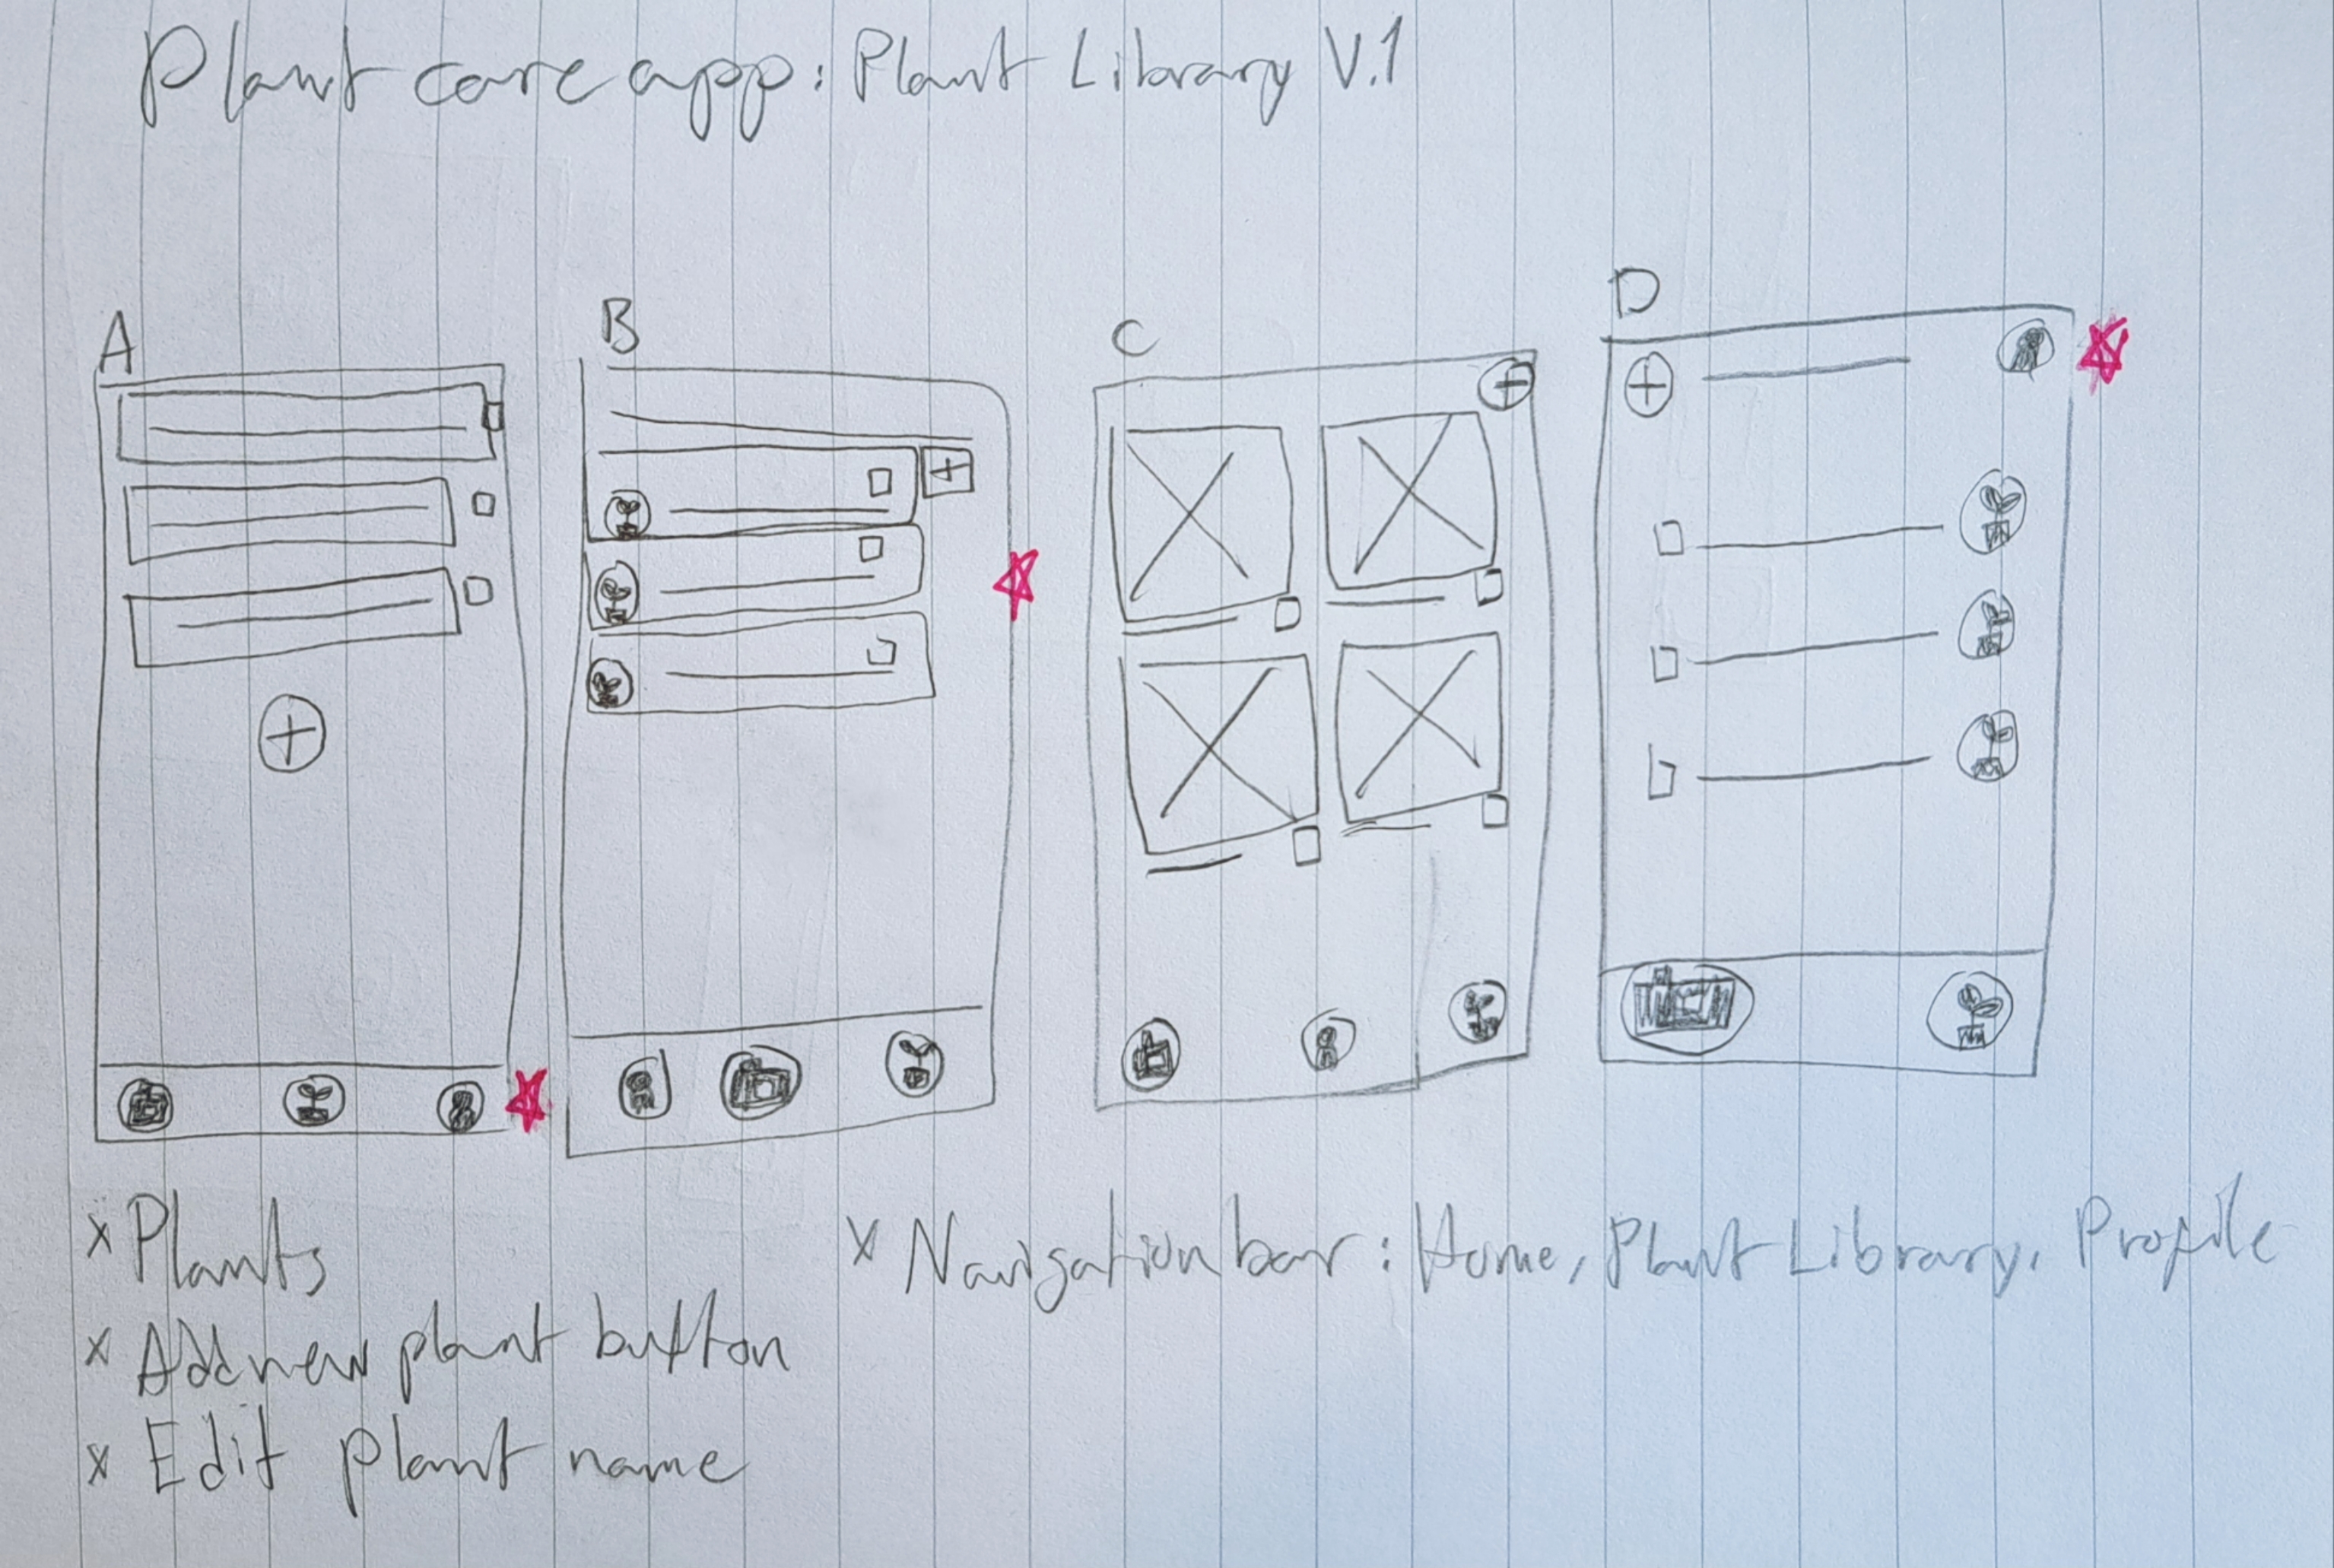 Plant care app: Plant Library V.1
A
B
C
D
x Plants
x Add new plant button
x Edit plant name
x Navigation bar: Home, Plant Library, Profile